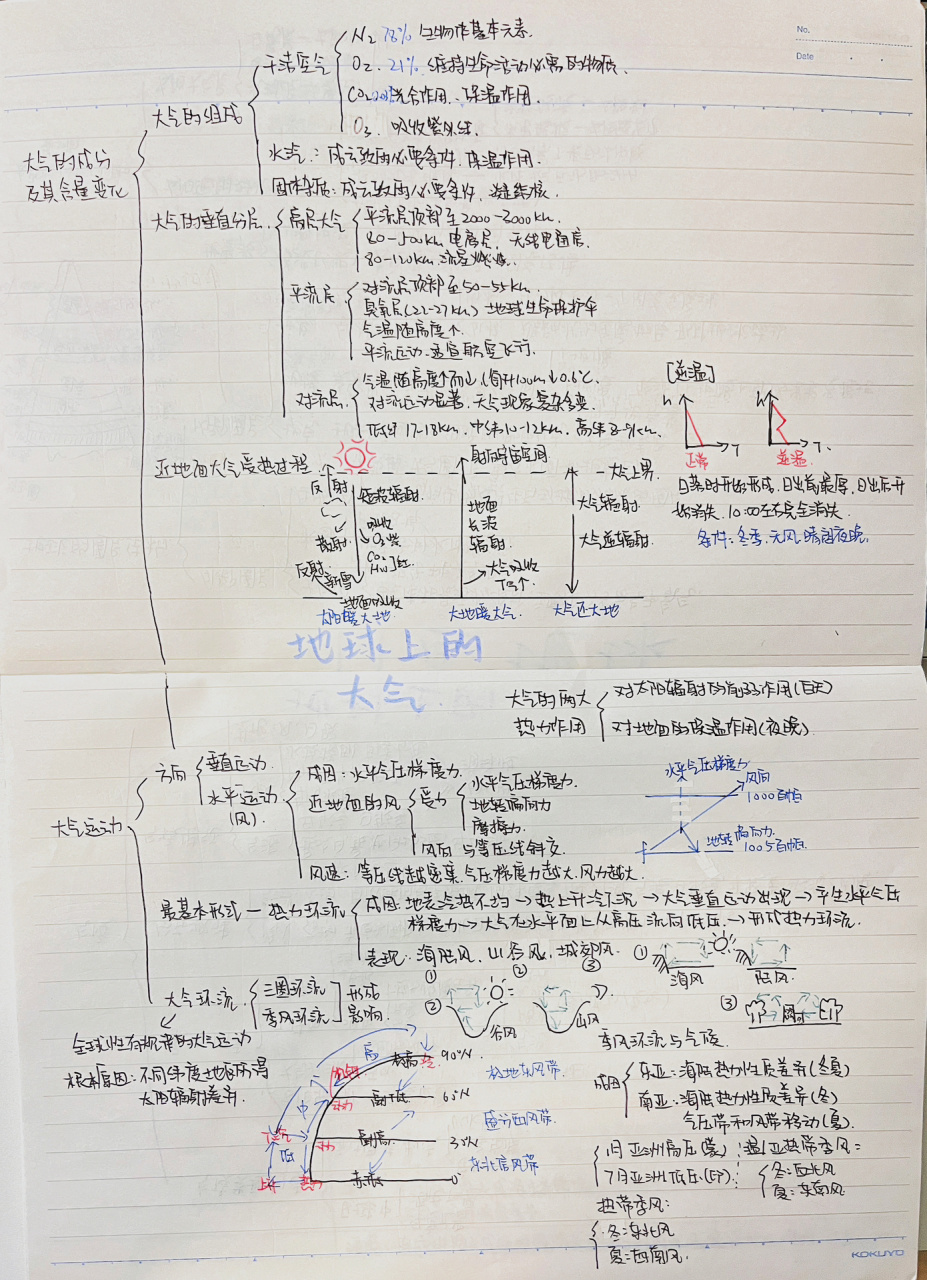 No.
Date
N₂ 78% 生物体基本元素.
干洁空气
O₂. 21% 维持生命活动必需的物质.
CO₂ 光合作用、保温作用.
大气的组成
O₃. 吸收紫外线.
大气的成分
及其含量变化
水汽:成云致雨必要条件.保温作用.
固体杂质:成云致雨必要条件,凝结核.
大气的垂直分层.
高层大气
平流层顶部至2000-3000km.
80-500km 电离层,无线电通信.
80-120km 流星燃烧.
对流层顶部至50-55km.
平流层
臭氧层(22-27km) 地球生命保护伞
气温随高度↑.
平流运动.适宜航空飞行.
气温随高度↑而↓(每升100m↓0.6℃.
对流层.
对流运动显著,天气现象复杂多变.
低纬17-18km.中纬10-12km.高纬8-9km.
[逆温]
h
T
正常
h
T.
逆温
日落时开始形成,日出前最厚,日出后开
始消失,10:00左右完全消失.
条件:冬季,无风,晴朗夜晚.
近地面大气受热过程.
射向宇宙空间
大气上界
反射
短波辐射
吸收
O₃紫
CO₂
H₂O
红
散射
反射.
新雪
地面吸收
太阳暖大地
地面
长波
辐射.
大气吸收
T℃↑
大地暖大气
大气辐射
大气逆辐射.
大气还大地
地球上的
大气.
大气的两大
热力作用
对太阳辐射的削弱作用(白天)
对地面的保温作用(夜晚)
大气运动
方向
垂直运动.
水平运动
(风).
成因:水平气压梯度力.
近地面的风
受力
水平气压梯度力
地转偏向力
摩擦力.
风向 与等压线斜交.
风速:等压线越密集气压梯度力越大.风力越大.
水平气压梯度力
风向
1000百帕
地转偏向力.
1005百帕.
最基本形式—热力环流
成因:地表冷热不均→热上升冷下沉→大气垂直运动出现→产生水平气压
梯度力→大气在水平面上从高压流向低压.→形成热力环流.
表现:海陆风、山谷风、城郊风.
① ② ③
①
海风
陆风
②
谷风
山风
③
大气环流.
三圈环流
季风环流
形成
影响
全球性有规律的大气运动
根本原因:不同纬度地区所得
太阳辐射差异
高
中
低
极高
90°N
极地东风带
副极低
60°N
盛行西风带.
副高.
30°N
东北信风带
赤低
0°
动力
动力
热力
上升
季风环流与气候
成因
东亚:海陆热力性质差异(冬夏)
南亚:海陆热力性质差异(冬)
气压带和风带移动(夏).
1月 亚洲高压
7月 亚洲低压(印).
温/亚热带季风:
冬:西北风
夏:东南风
热带季风:
冬:东北风
夏:西南风.
KOKUYO